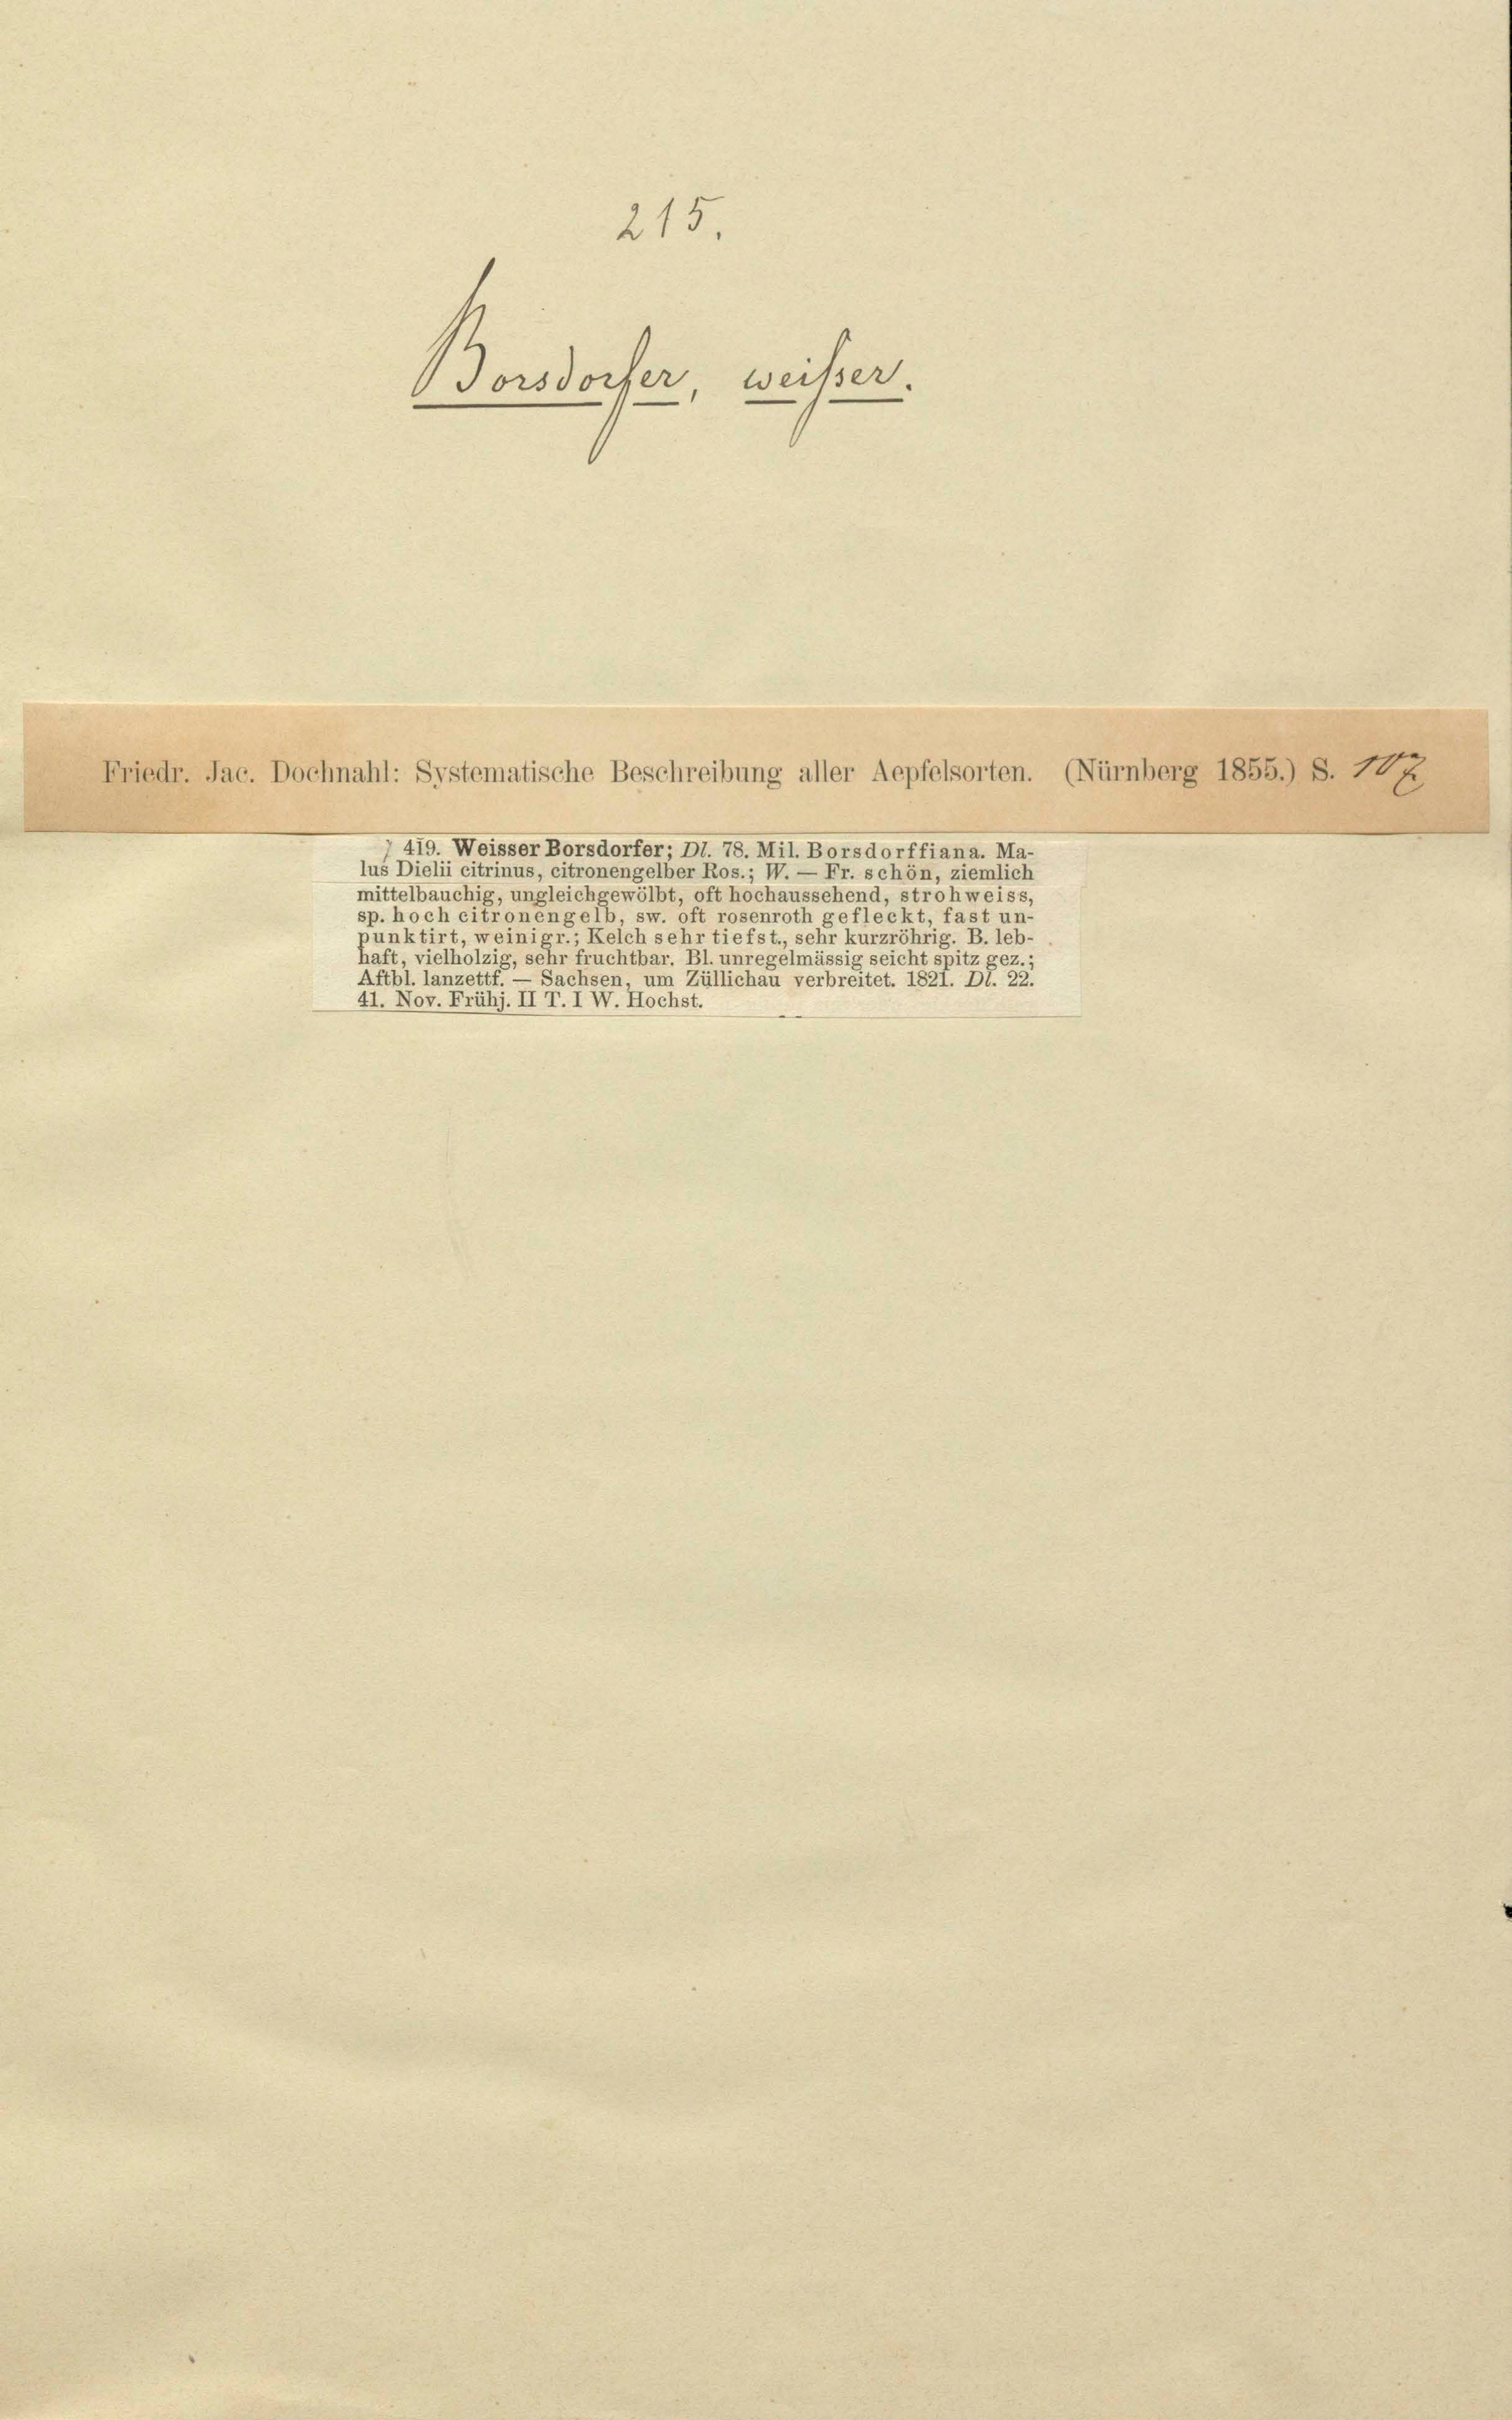 215.
Borsdorfer, weisser.
Friedr. Jac. Dochnahl: Systematische Beschreibung aller Aepfelsorten. (Nürnberg 1855.) S. 107
419. Weisser Borsdorfer; Dl. 78. Mil. Borsdorffiana. Ma-
lus Dielii citrinus, citronengelber Ros.; W. — Fr. schön, ziemlich
mittelbauchig, ungleichgewölbt, oft hochaussehend, strohweiss,
sp. hoch citronengelb, sw. oft rosenroth gefleckt, fast un-
punktirt, weinigr.; Kelch sehr tiefst., sehr kurzröhrig. B. leb-
haft, vielholzig, sehr fruchtbar. Bl. unregelmässig seicht spitz gez.;
Aftbl. lanzettf. — Sachsen, um Züllichau verbreitet. 1821. Dl. 22.
41. Nov. Frühj. II T. I W. Hochst.